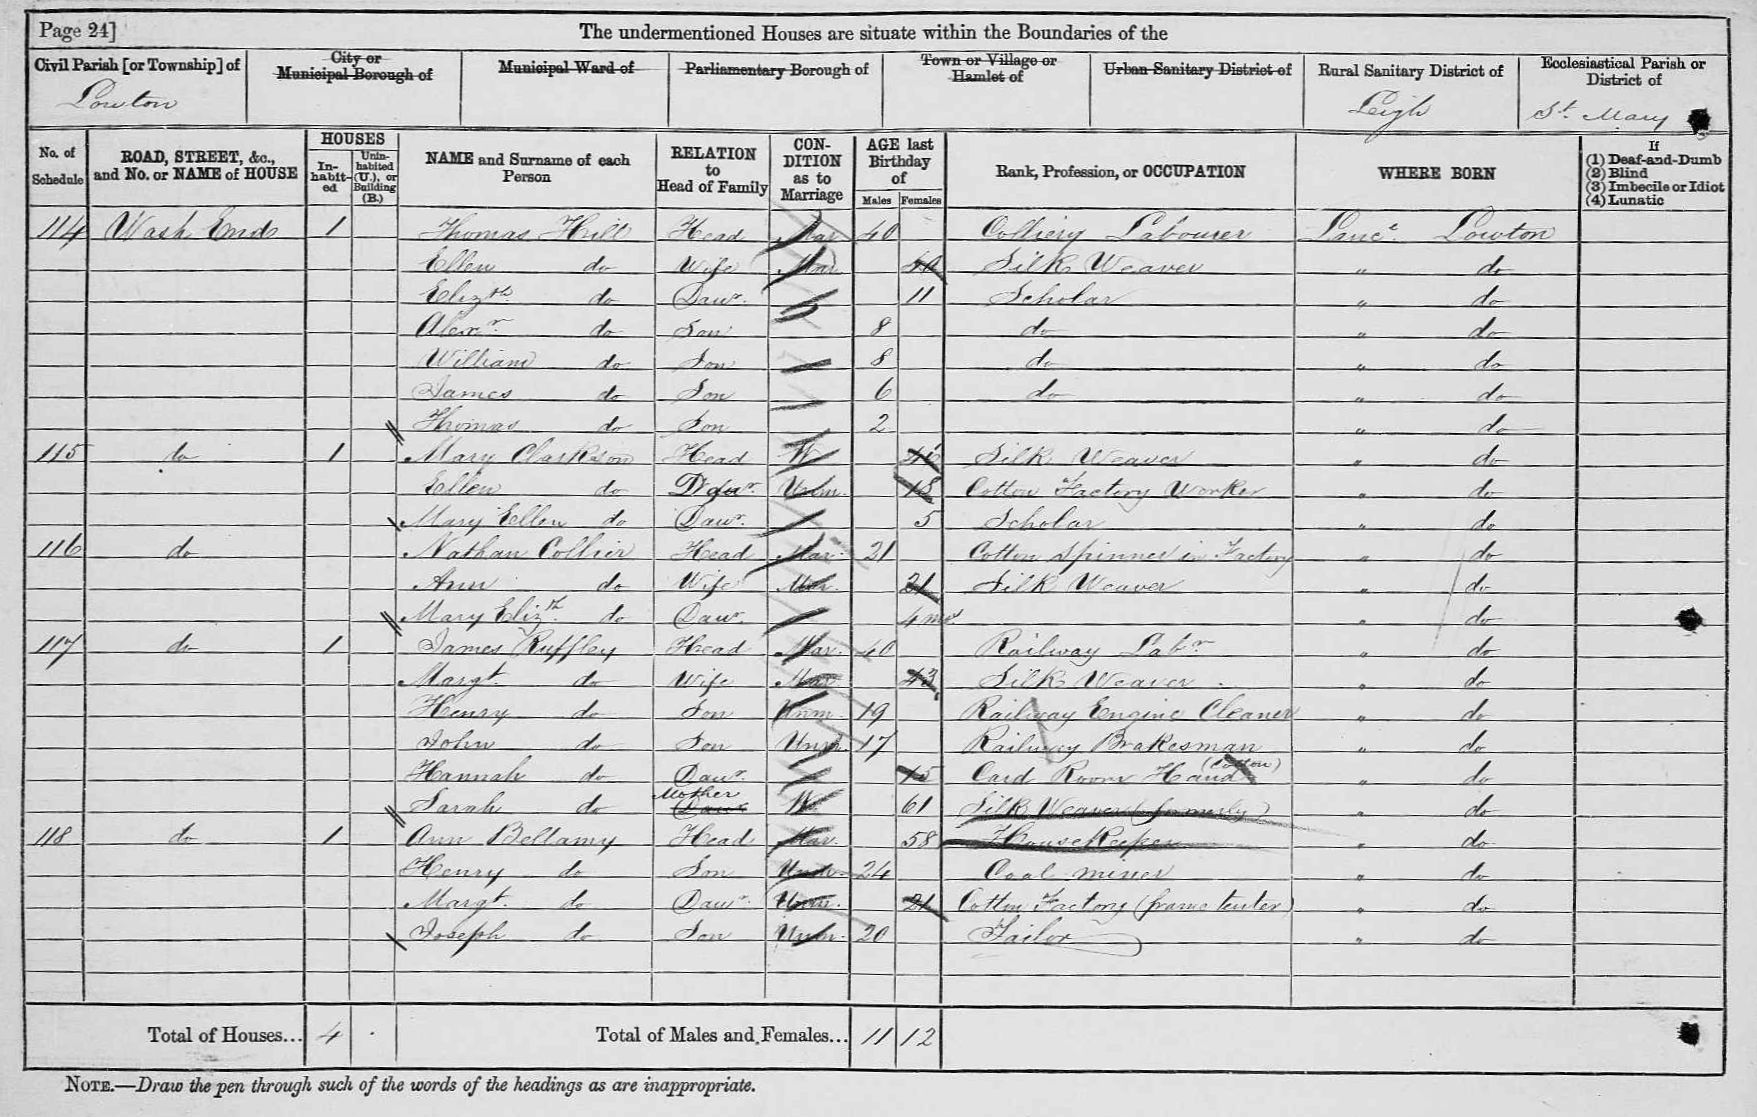 Page 24]
The undermentioned Houses are situate within the Boundaries of the
Civil Parish [or Township] of
Lowton
City or
Municipal Borough of
Municipal Ward of
Parliamentary Borough of
Town or Village or
Hamlet of
Urban Sanitary District of
Rural Sanitary District of
Leigh
Ecclesiastical Parish or
District of
St. Mary
No. of
Schedule
ROAD, STREET, &c.,
and No. or NAME of HOUSE
HOUSES
In-
habit-
ed
Unin-
habited
(U.), or
Building
(B.)
NAME and Surname of each
Person
RELATION
to
Head of Family
CON-
DITION
as to
Marriage
AGE last
Birthday
of
Males
Females
Rank, Profession, or OCCUPATION
WHERE BORN
If
(1) Deaf-and-Dumb
(2) Blind
(3) Imbecile or Idiot
(4) Lunatic
114 Wash End 1 Thomas Hill Head Mar 40 Colliery Labourer Lanc. Lowton
Ellen do Wife Mar 40 Silk Weaver " do
Elizth do Daur. 11 Scholar " do
Alexr do Son 8 do " do
William do Son 8 do " do
James do Son 6 do " do
Thomas do Son 2 " do
115 do 1 Mary Clarkson Head W Silk Weaver " do
Ellen do Daur. Unm. 18 Cotton Factory Worker " do
Mary Ellen do Daur. 5 Scholar " do
116 do Nathan Collier Head Mar. 21 Cotton Spinner in Factory " do
Ann do Wife Mar. 21 Silk Weaver " do
Mary Elizth. do Daur. 4 mo " do
117 do 1 James Ruffley Head Mar. 40 Railway Labr " do
Margt. do Wife Mar 43 Silk Weaver " do
Henry do Son Unm. 19 Railway Engine Cleaner " do
John do Son Unm 17 Railway Brakesman " do
Hannah do Daur. 15 Card Room Hand (Cotton) " do
Sarah do Mother Daur W. 61 Silk Weaver (formerly) " do
118 do 1 Ann Bellamy Head Mar. 58 House Keeper " do
Henry do Son Unm. 24 Coal miner " do
Margt. do Daur. Unm. 21 Cotton Factory (frame tenter) " do
Joseph do Son Unm. 20 Tailor " do
Total of Houses... 4
Total of Males and Females... 11 12
NOTE.—Draw the pen through such of the words of the headings as are inappropriate.